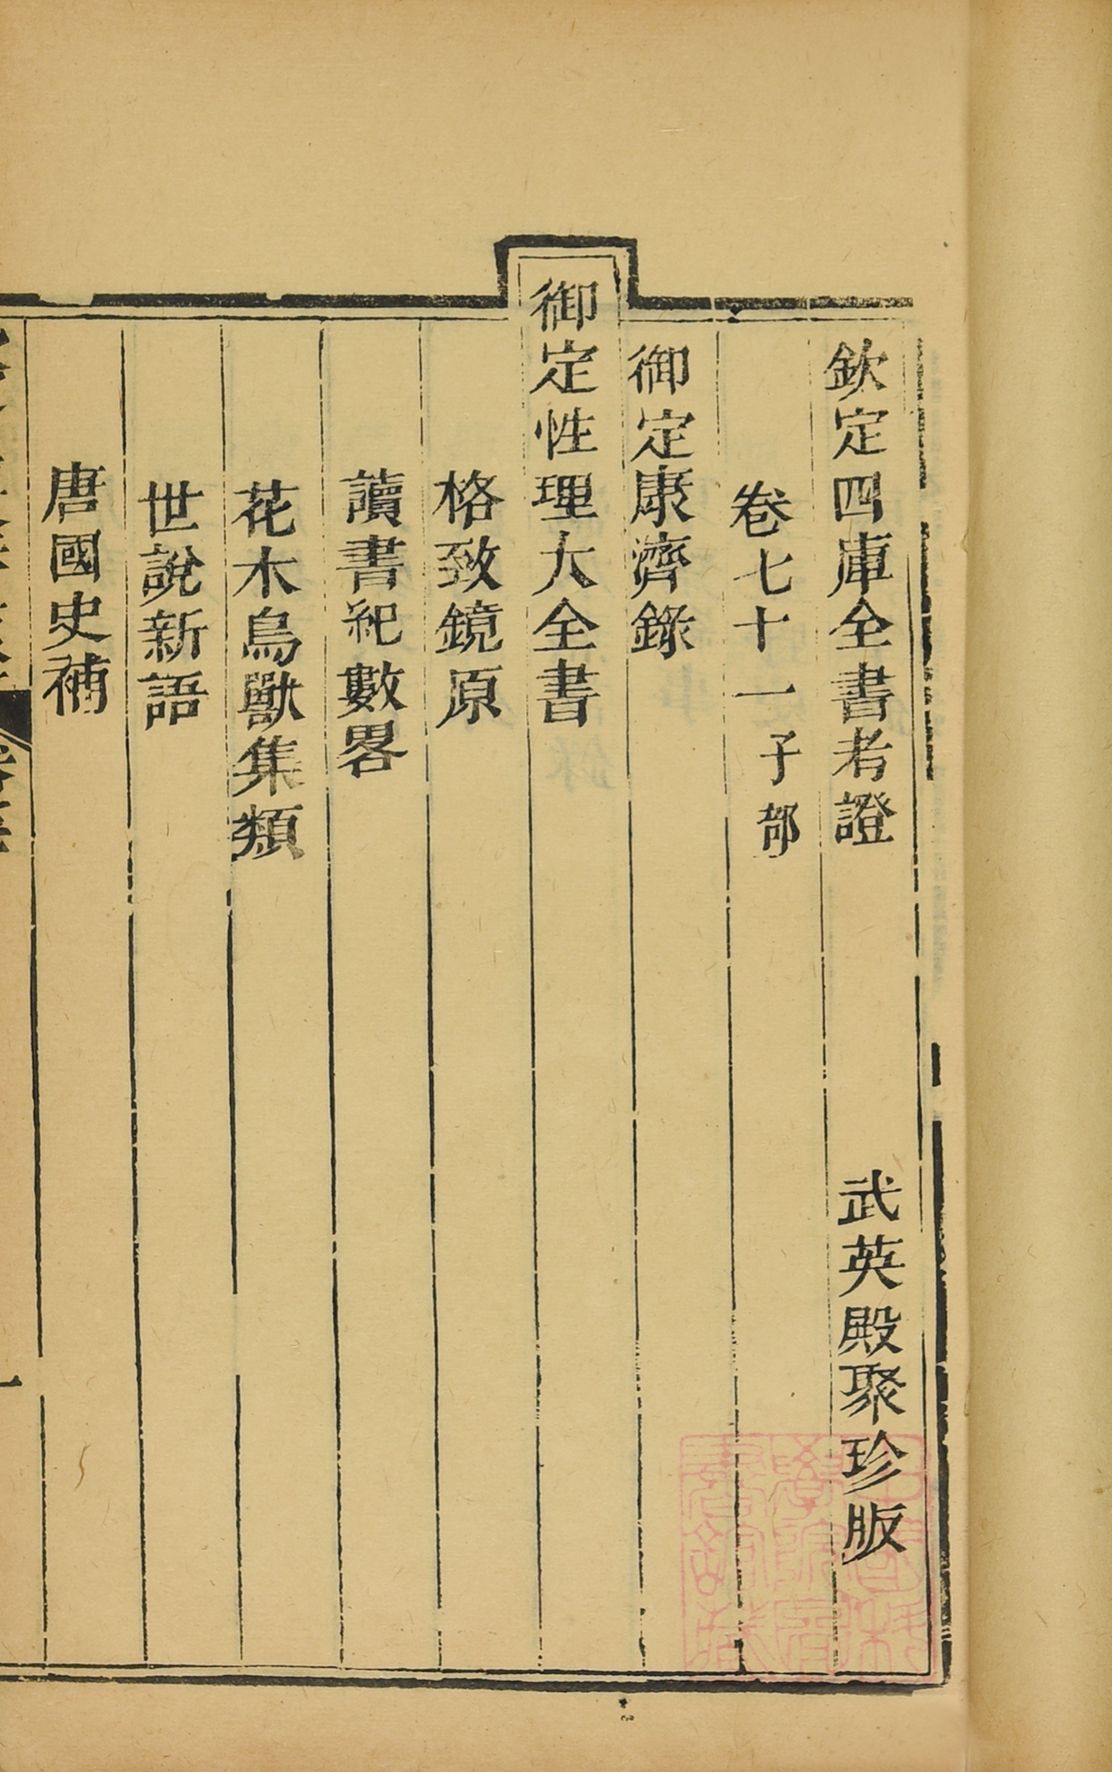 欽定四庫全書考證 武英殿聚珍版
卷七十一 子部
御定康濟錄
御定性理大全書
格致鏡原
讀書紀數畧
花木鳥獸集類
世說新語
唐國史補